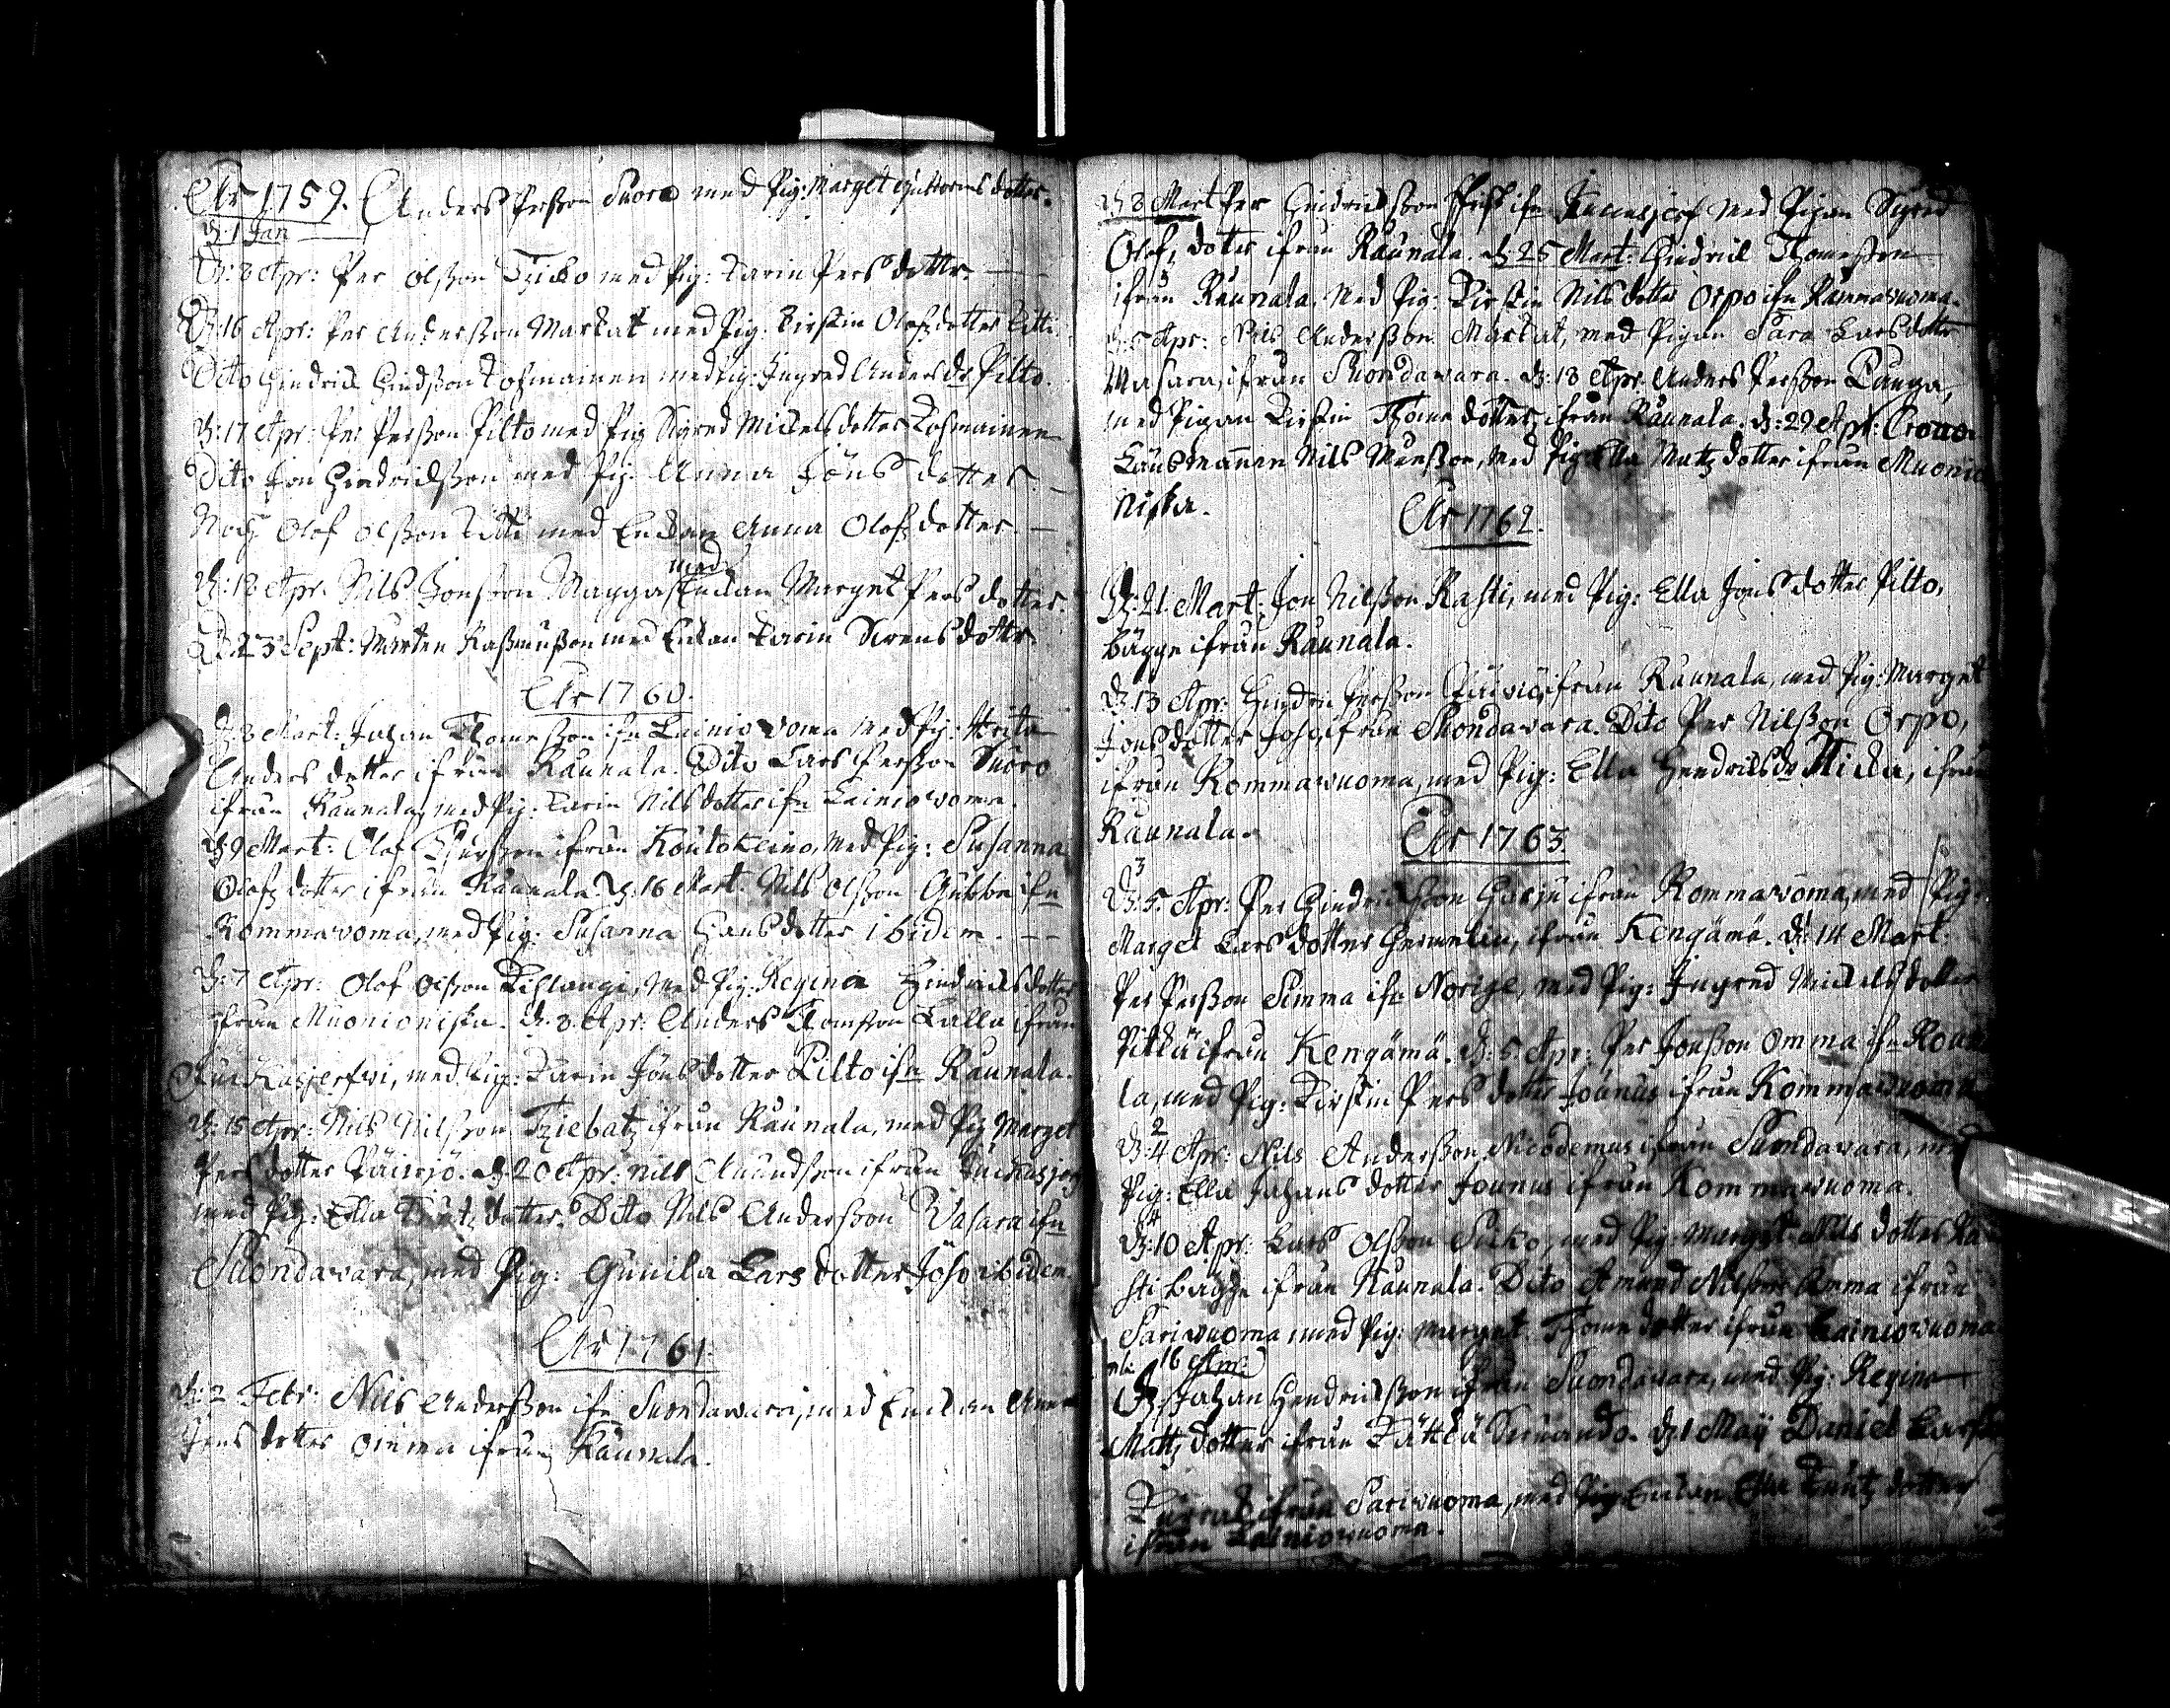 År 1759. Anders Persson Suora med Pig: Marget Guttormsdotter.
D. 1 Jan
D. 8 Apr: Per Olsson Tzicko med Pig: Karin Persdotter.
D. 16 Apr: Per Andersson Markat med Pig: Kirstin Olofzdotter Kitti
Dito Hindrick Hindsson Kosmainen med Pig: Ingred Anders dr Pilto.
D. 17 Apr: Per Persson Pilto med Pig Sigred Mickelsdotter Kosmainen
Dito Jon Hindrichsson med Pig: Anna Jöns dotter.
Olof Olsson Kitti med Enckan Anna Olofzdotter.
med
D: 18 Apr. Nils Jonsson Magga Enckan Marget Persdotter.
D. 23 Sept: Mårten Rasmusson med Enkan Karin Sörensdotter.
År 1760.
D. 8 Mart: Johan Thomesson ifn Lainiovoma med Pig: Brita
Andersdotter ifrån Raunala. Dito Lars Persson Suoro
ifrån Raunala, med Pig: Karin Nilsdotter ifn Lainiovoma.
D. 9 Mart: Olof ifrån Koutokeino, med Pig: Susanna
Olofzdotter ifrån Raunala. D. 16 Mart. Nils Olsson Gubba ifn
Kommavoma, med Pig: Susanna dotter ibidem.
D: 7 Apr: Olof Olsson Killangi, med Pig: Regina Hindricksdotter
ifrån Muonioniska. D. 8. Apr: Anders Tomsson Lalla ifrån
Juckasjerfwi, med Pig: Karin Jönsdotter Pilto ifn Raunala.
D: 15 Apr: Nils Nilsson Tziebatz ifrån Raunala, med Pig Marget
Persdotter Päiwiö. D. 20 Apr: Nils Amundsson ifrån Juckasjerf
med Pig: Ella Knutzdotter. Dito Nils Andersson Vasara ifn
Suondavara, med Pig: Gunila Larsdotter Joso ibidem.
År 1761.
D: 2 Febr: Nils Andersson ifn Suondawara, med Enckan Anna
Jonsdotter Omma ifrån Raunala.
D. 8 Mart Per Hindricksson ifn Juccasjerf med Pigan Sigred
Olofzdotter ifrån Raunala. D. 25 Mart: Hindrick Thomesson
ifrån Raunala med Pig: Kirstin Nilsdotter Orpo ifn Rommavuoma.
D. 5 Apr: Nils Andersson Markat, med Pigan Sara Larsdotter
Wasara, ifrån Suondawara. D: 18 Apr. Anders Persson Punga,
med Pigan Kirstin Thomedotter ifrån Raunala. D: 29 Apr: Crono
Länsmannen Nils Månsson, med Pig: Ella Matzdotter ifrån Muonio
niska.
År 1762.
D: 21. Mart: Jon Nilsson Rasti, med Pig: Ella Jonsdotter Pilto,
bägge ifrån Raunala.
D. 13 Apr: Hindric Persson Päiviö ifrån Raunala, med Pig: Marget
Jonsdotter Joso, ifrån Suondawara. Dito Per Nilsson Orpo,
ifrån Rommawuoma, med Pig: Ella Hendricsdr Sicka, ifrån
Raunala.
År 1763.
3
D. 5. Apr: Per Hindrichsson Harju ifrån Rommavoma, med Pig:
Marget Larsdotter Hermelin, ifrån Kengämä. D. 14 Mart:
Per Persson Simma ifn Norige, med Pig: Ingred Mickelsdotter
Pitkä ifrån Kengämä. D: 5. Apr: Per Jonsson Omma ifn Rouna
la, med Pig: Kirstin Persdotter Jounus ifrån Kommawuoma
2
D. 4 Apr: Nils Andersson Nicodemus ifrån Suondavara, med
Pig: Ella Johansdotter Jounus ifrån Kommawuoma.
4
D: 10 Apr: Lars Olsson Sicko, med Pig: Marget Nilsdotter Ra
sti bägge ifrån Raunala. Dito Amund Nilsson Omma ifrån
Sariwuoma med Pig: Marget Thomedotter ifrån Lainiowuoma
16 Apr:
D. Johan Hendricksson ifrån Suondavara, med Pig: Regina
Mattzdotter ifrån Kätkäsuuando. D. 1 Maij Daniel Larss
Kurrack ifrån Sariwuoma, med Enckan Ella Knutzdotter
ifrån Lainiowuoma.